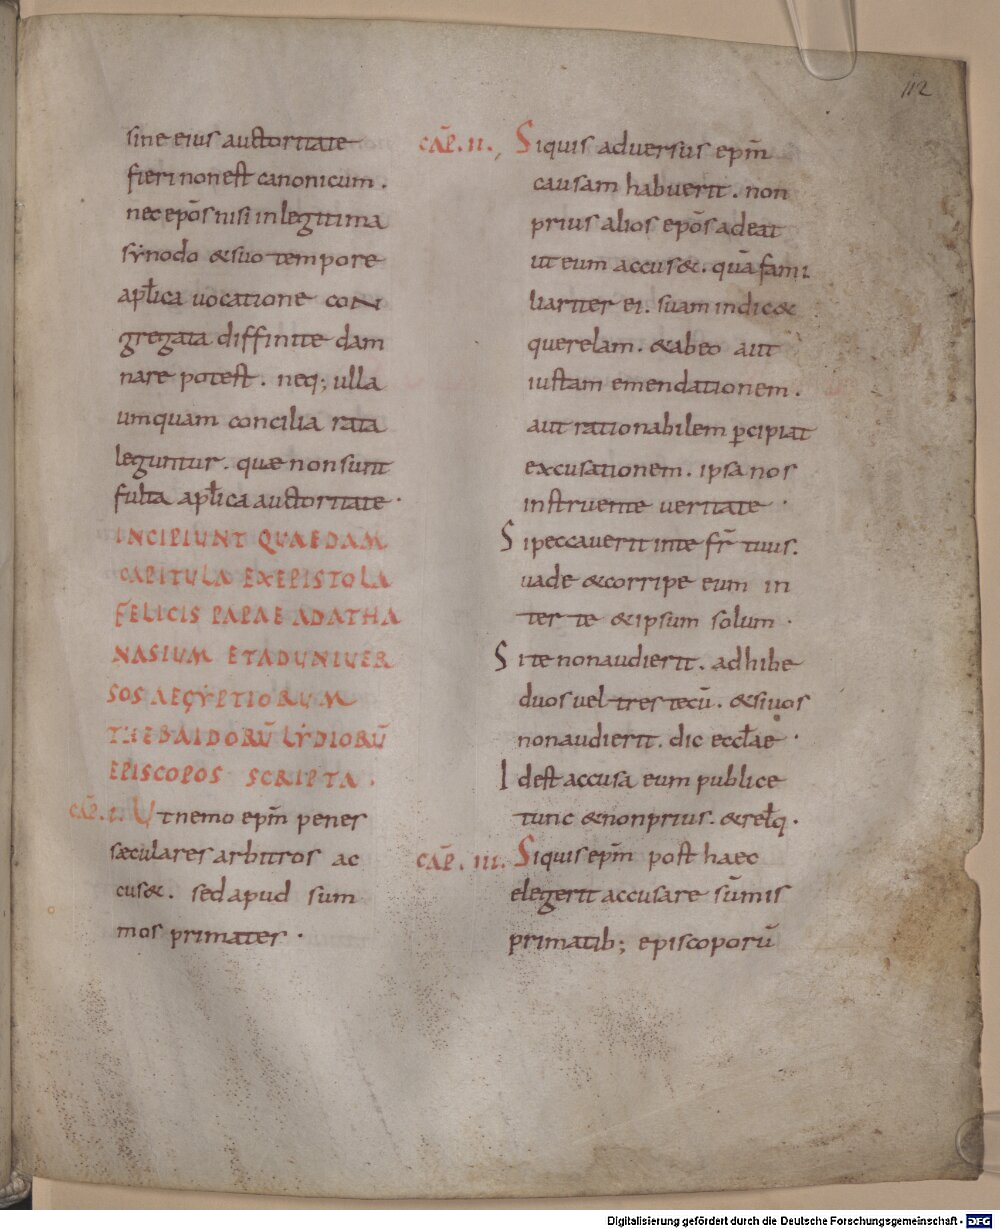 112
sine eius auctoritate
fieri non est canonicum.
nec ep̄os nisi in legitima
sẏnodo & suo tempore
apl̄ica uocatione con
gregata diffinite dam
nare potest. neq; ulla
umquam concilia rata
leguntur. quae non sunt
fulta apl̄ica auctoritate.
INCIPIUNT QUAEDAM
CAPITULA EX EPISTOLA
FELICIS PAPAE AD ATHA
NASIUM ET AD UNIUER
SOS AEGẎPTIORUM
THEBAIDORŪ LẎDIORŪ
EPISCOPOS SCRIPTA.
CAP̄. I. Ut nemo ep̄m penes
sæculares arbitros ac
cus&. sed apud sum
mos primates.
CAP̄. II. Si quis aduersus ep̄m
causam habuerit. non
prius alios ep̄os adeat
ut eum accus&. quā fami
liariter ei. suam indic&
querelam. & ab eo aut
iustam emendationem.
aut rationabilem p̄cipiat
excusationem. ipsa nos
instruente ueritate.
Si peccauerit in te fr̄ tuus.
uade & corripe eum in
ter te & ipsum solum.
Si te non audierit. adhibe
duos uel tres tecū. & si uos
non audierit. dic eccl̄ae.
Id est accusa eum publice
tunc & non prius. & rel̄q.
CAP̄. III. Si quis ep̄m post haec
elegerit accusare sūmis
primatib; episcoporū
Digitalisierung gefördert durch die Deutsche Forschungsgemeinschaft - DFG